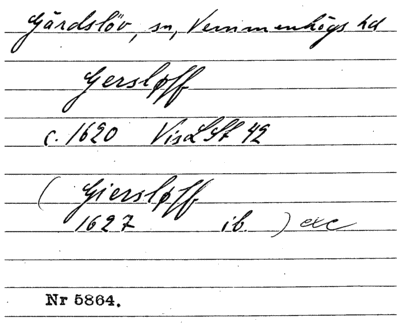 Gärdslöv, sn, Vemmenhögs hd
Gersløff
c. 1620 VisLSt 42
( Giersløff
1627 ib. ) exc
Nr 5864.